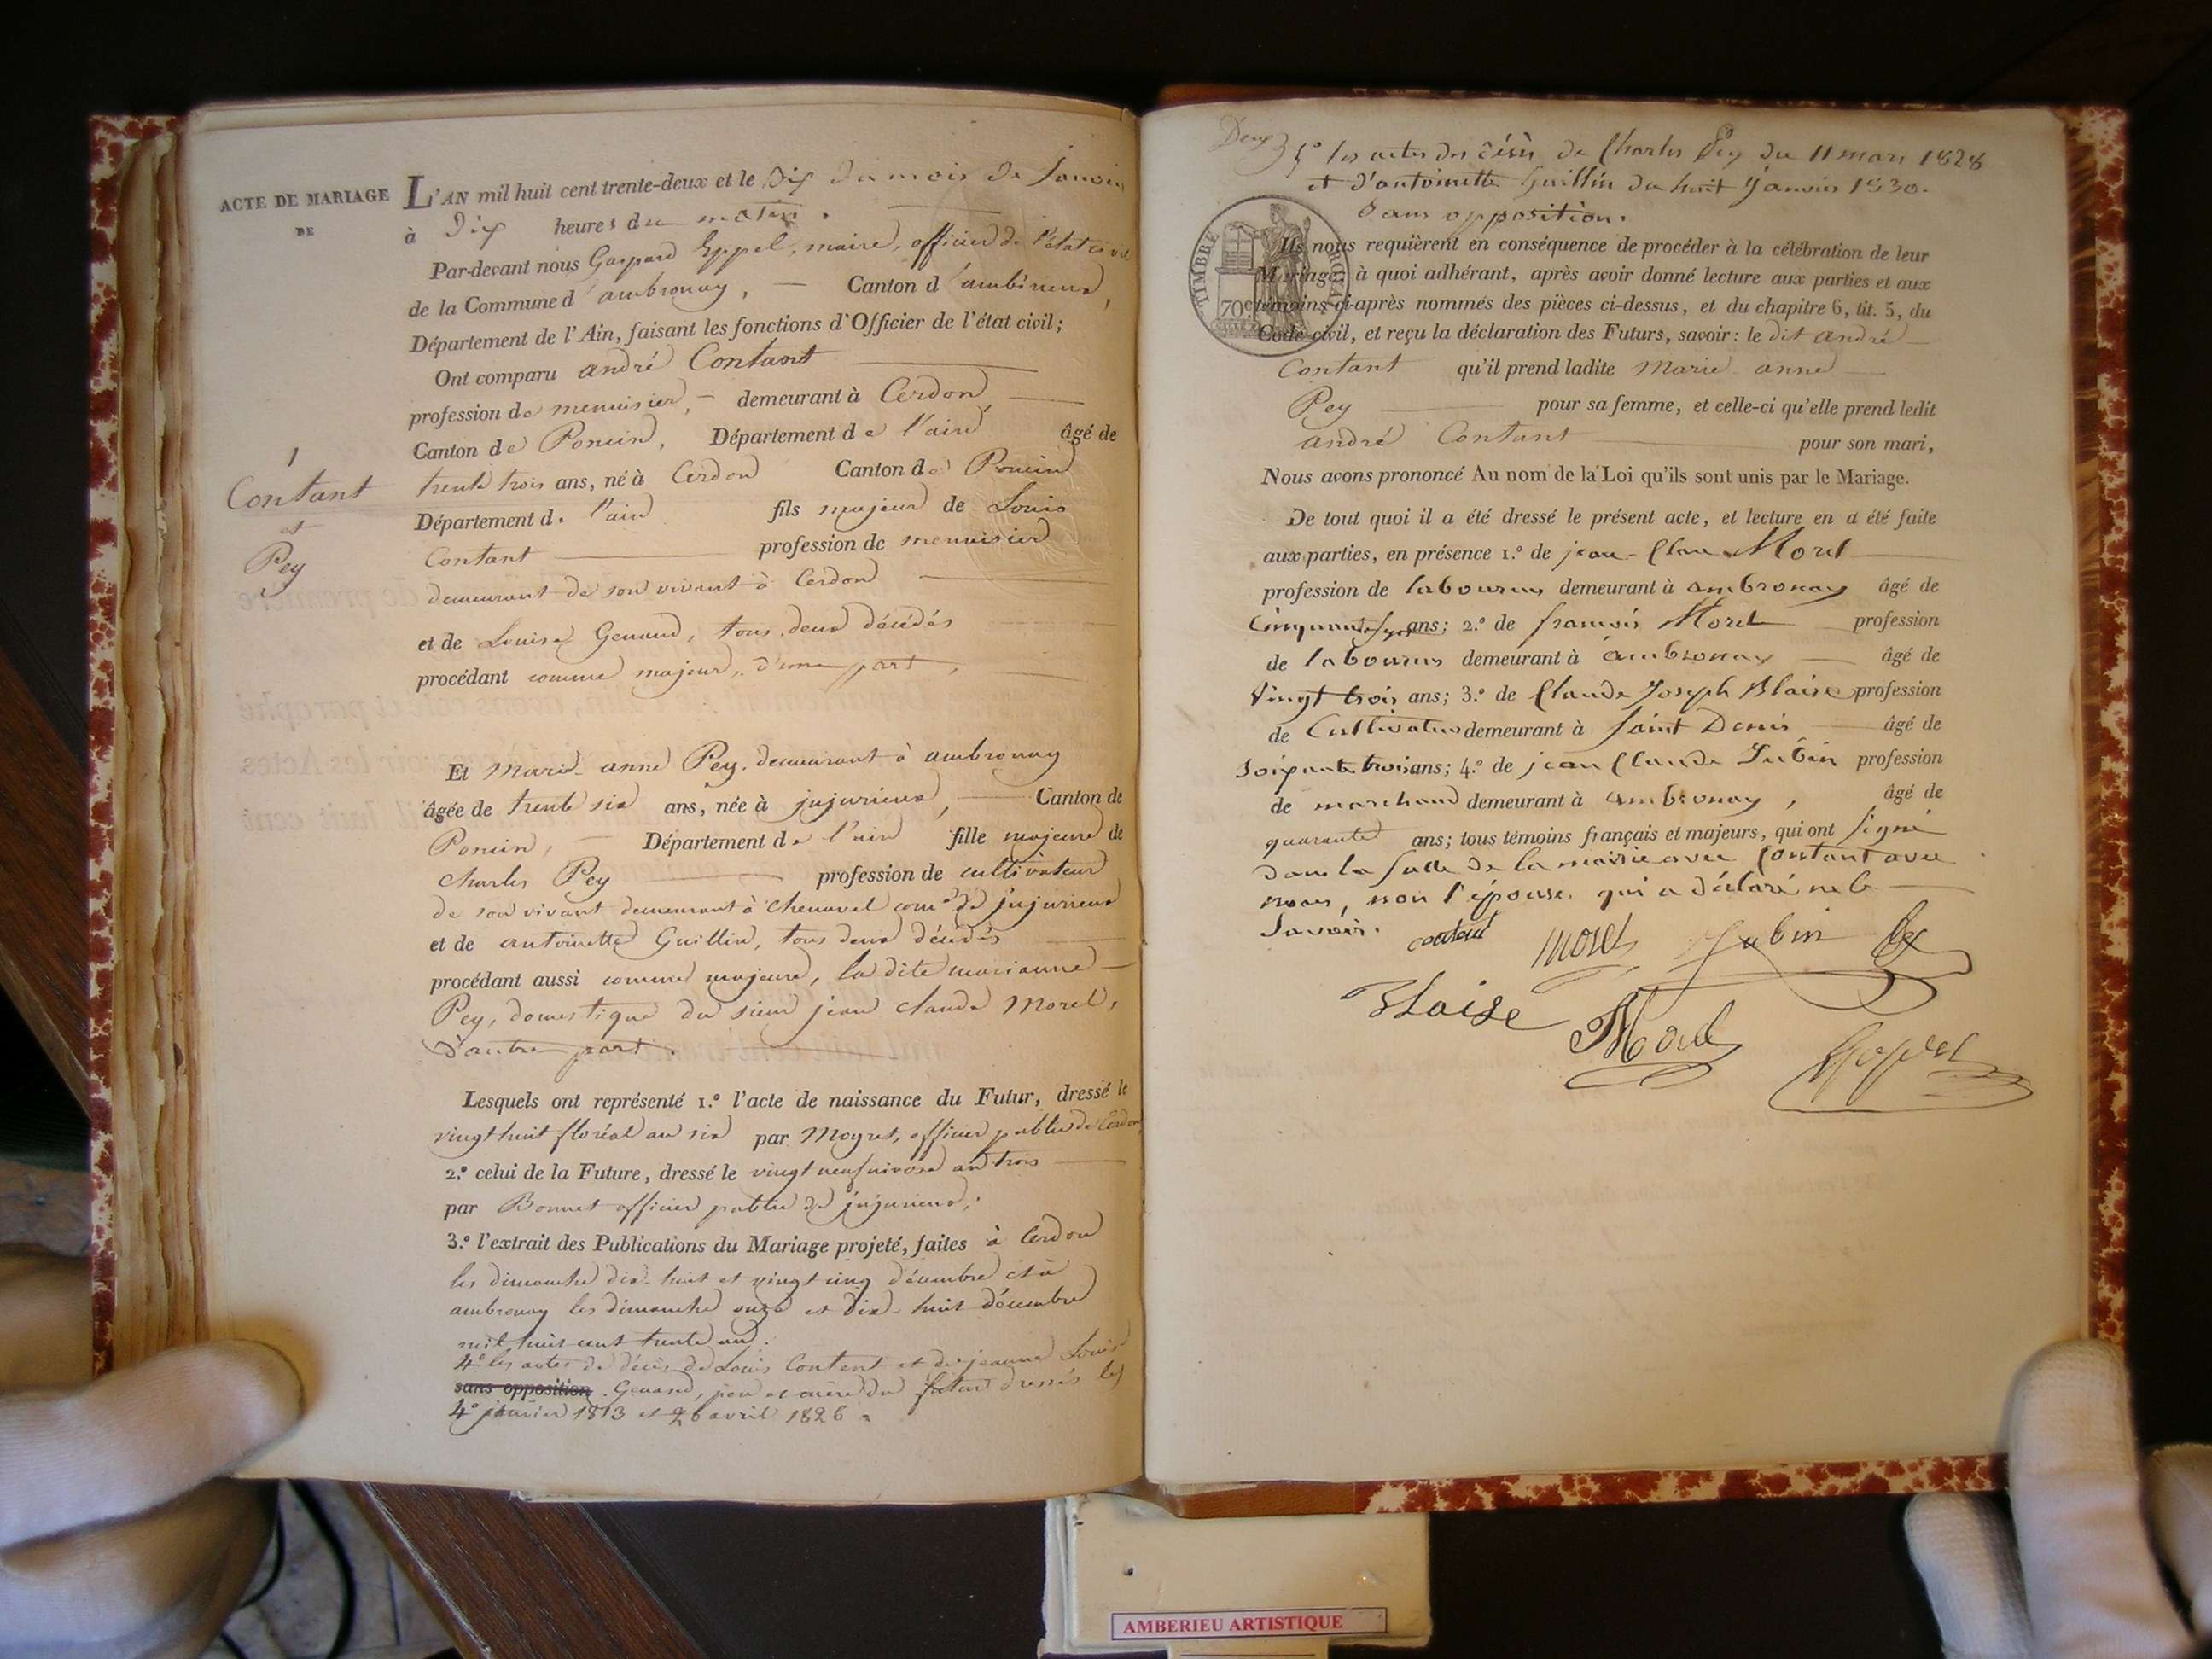 ACTE DE MARIAGE
DE
1
Contant
et
Pey
L'AN mil huit cent trente-deux et le Dix du mois de Janvier
à Dix heures du matin.
Par-devant nous Gaspard Eppel, maire, officier de l'état civil
de la Commune d'ambronay, Canton d'ambérieux,
Département de l'Ain, faisant les fonctions d'Officier de l'état civil;
Ont comparu andré Contant
profession de menuisier, demeurant à Cerdon
Canton de Poncin, Département de l'ain âgé de
trente trois ans, né à Cerdon Canton de Poncin
Département de l'ain fils majeur de Louis
Contant profession de menuisier
demeurant de son vivant à Cerdon
et de Louise Genaud, tous deux décédés
procédant comme majeur, d'une part,
Et Marie anne Pey, demeurant à ambronay
âgée de trente six ans, née à jujurieux, Canton de
Poncin, Département de l'ain fille majeure de
Charles Pey profession de cultivateur
de son vivant demeurant à Chenavel com.e de jujurieux
et de antoinette Guillin, tous deux décédés
procédant aussi comme majeure, la dite marianne
Pey, domestique du sieur jean claude Morel,
d'autre part.
Lesquels ont représenté 1.º l'acte de naissance du Futur, dressé le
vingt huit floréal an six par Moyret, officier public de Cerdon
2.º celui de la Future, dressé le vingt neuf nivose an trois
par Bonnet officier public de jujurieux;
3.º l'extrait des Publications du Mariage projeté, faites à Cerdon
les dimanche dix-huit et vingt cinq décembre et à
ambronay les dimanche onze et dix-huit décembre
mil huit cent trente un.
4º les actes de décès de Louis Contant et de jeanne Louise
sans opposition. Genaud, père et mère du futur dressés les
4º janvier 1813 et 26 avril 1826.
Deux
5º les actes des décès de Charles Pey du 11 mars 1828
et d'antoinette Guillin du huit Janvier 1830.
Sans opposition.
TIMBRE ROYAL
70c
Ils nous requièrent en conséquence de procéder à la célébration de leur
Mariage; à quoi adhérant, après avoir donné lecture aux parties et aux
témoins ci-après nommés des pièces ci-dessus, et du chapitre 6, tit. 5, du
Code civil, et reçu la déclaration des Futurs, savoir: le dit andré
Contant qu'il prend ladite Marie anne
Pey pour sa femme, et celle-ci qu'elle prend ledit
andré Contant pour son mari,
Nous avons prononcé Au nom de la Loi qu'ils sont unis par le Mariage.
De tout quoi il a été dressé le présent acte, et lecture en a été faite
aux parties, en présence 1.º de jean-Claude Morel
profession de laboureur demeurant à ambronay âgé de
Cinquante ans; 2.º de francois Morel profession
de laboureur demeurant à ambronay âgé de
Vingt trois ans; 3.º de Claude Joseph Blaise profession
de Cultivateur demeurant à Saint Denis âgé de
Soixante trois ans; 4.º de jean Claude Jubin profession
de marchand demeurant à ambronay, âgé de
quarante ans; tous témoins français et majeurs, qui ont Signé
dans la Salle de la mairie avec Contant avec
nous, non l'épouse, qui a déclaré ne le
Savoir.
contant morel Jubin
Blaise Morel Eppel
AMBERIEU ARTISTIQUE